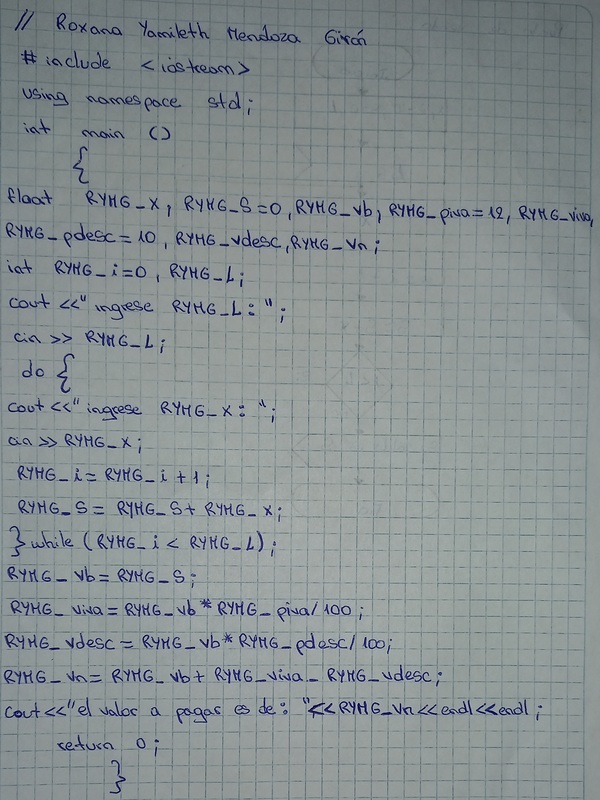 // Roxana Yamileth Mendoza Girón
# include <iostream>
using namespace std;
int main ()
{
float RYMG_x, RYMG_S=0, RYMG_vb, RYMG_piva=12, RYMG_viva,
RYMG_pdesc=10, RYMG_vdesc, RYMG_vn;
int RYMG_i=0, RYMG_L;
cout <<" ingrese RYMG_L: ";
cin >> RYMG_L;
do {
cout <<" ingrese RYMG_x: ";
cin >> RYMG_x;
RYMG_i= RYMG_i +1;
RYMG_S = RYMG_S+ RYMG_x;
} while (RYMG_i < RYMG_L);
RYMG_vb = RYMG_S;
RYMG_viva= RYMG_vb * RYMG_piva/100;
RYMG_vdesc = RYMG_vb* RYMG_pdesc/100;
RYMG_vn= RYMG_vb + RYMG_viva - RYMG_vdesc;
cout<<"el valor a pagar es de: "<<RYMG_vn<<endl<<endl;
return 0;
}